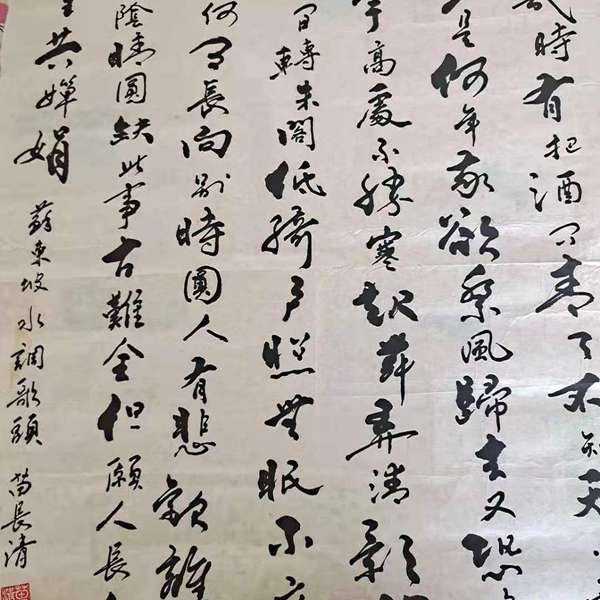 幾時有把酒问青天不知天
是何年我欲乘風歸去又恐
宇高處不勝寒起舞弄清影
间轉朱閣低綺户照無眠不應
何事長向别時圓人有悲歡離
陰晴圓缺此事古難全但願人長久
里共嬋娟 蘇東坡水調歌頭 苗長清